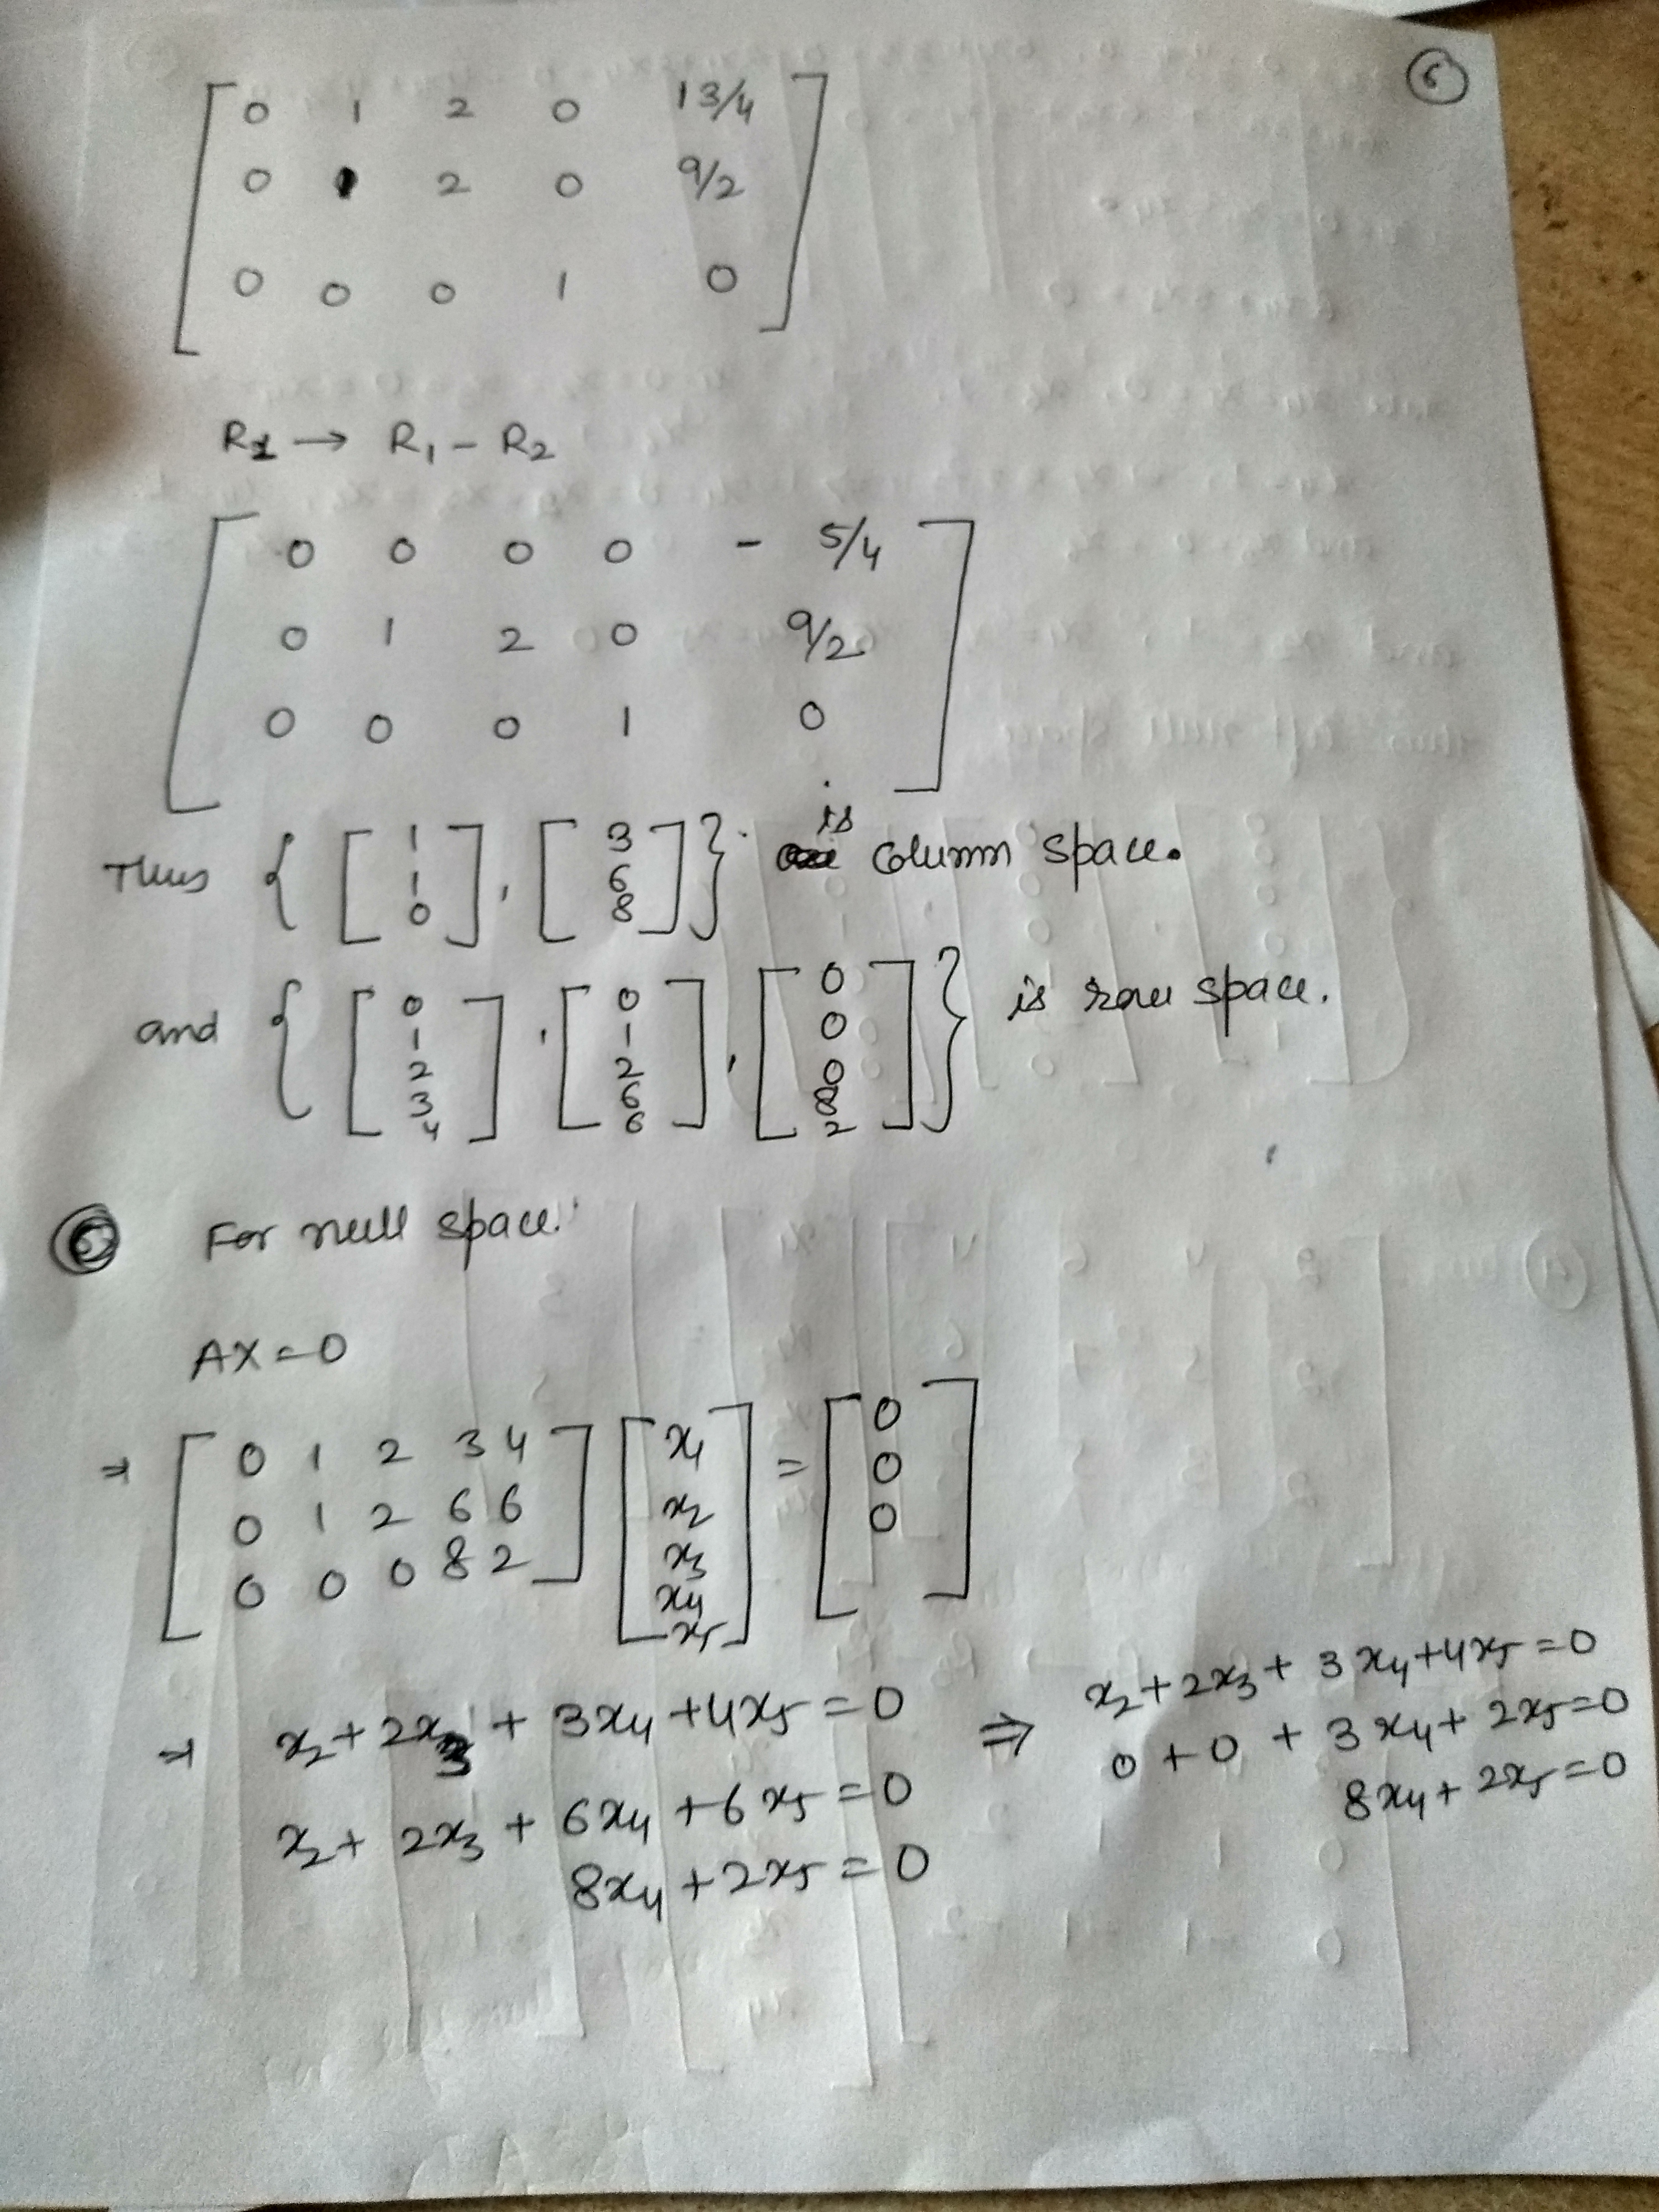 6
0 1 2 0 13/4
0 1 2 0 9/2
0 0 0 1 0
R1 → R1 - R2
0 0 0 0 - 5/4
0 1 2 0 9/2
0 0 0 1 0
Thus { [1 1 0], [3 6 8] } is column space.
and { [0 1 2 3 4], [0 1 2 6 6], [0 0 0 8 2] } is row space.
For null space.
AX = 0
⇒ [0 1 2 3 4] [x1] = [0]
[0 1 2 6 6] [x2] [0]
[0 0 0 8 2] [x3] [0]
x4
x5
⇒ x2 + 2x3 + 3x4 + 4x5 = 0
x2 + 2x3 + 6x4 + 6x5 = 0
8x4 + 2x5 = 0
⇒ x2 + 2x3 + 3x4 + 4x5 = 0
0 + 0 + 3x4 + 2x5 = 0
8x4 + 2x5 = 0